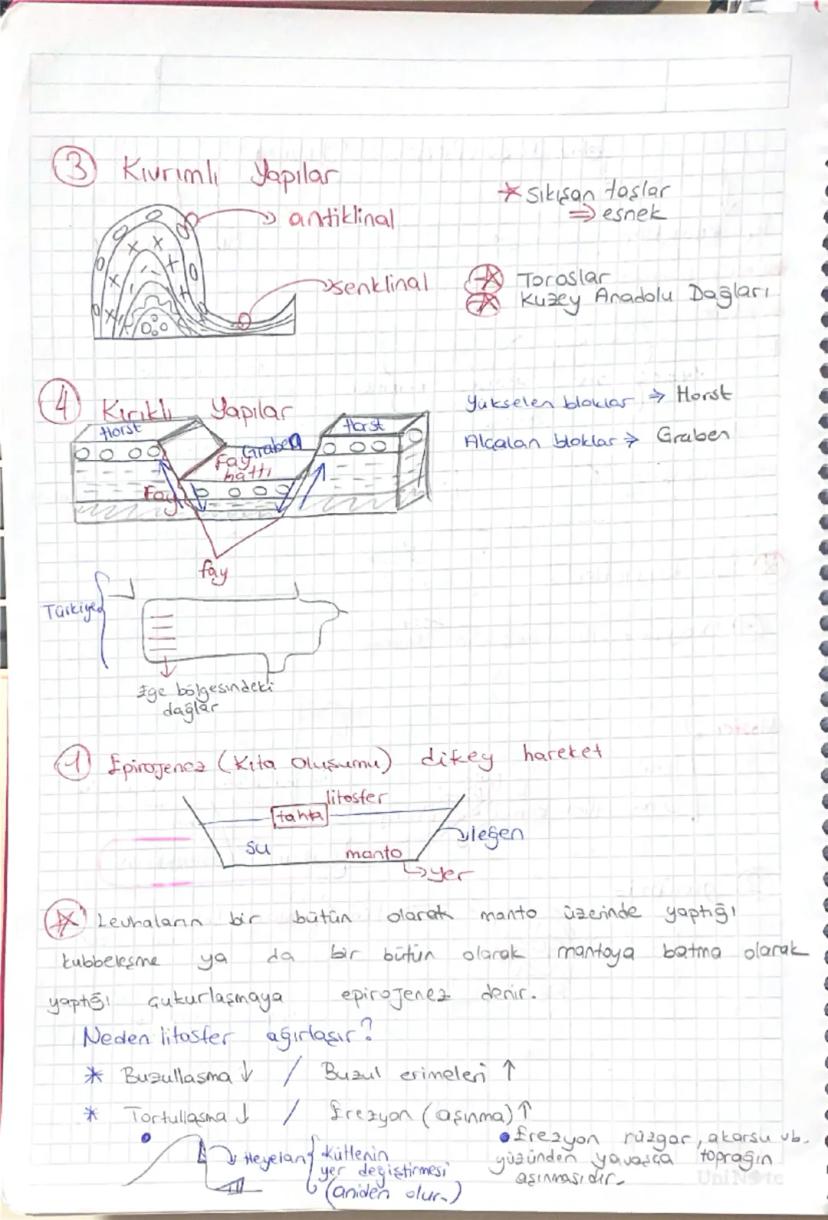 3 Kıvrımlı Yapılar
antiklinal
senklinal
* Sıkışan taşlar
⇒ esnek
* Toroslar
* Kuzey Anadolu Dağları
4 Kırıklı Yapılar
Horst
Graben
Horst
Fay hattı
Fay
fay
Yükselen bloklar → Horst
Alçalan bloklar → Graben
Türkiye
Ege bölgesindeki
dağlar
1 Epirojenez (Kıta Oluşumu) dikey hareket
litosfer
tahta
su
manto
leğen
yer
* Levhaların bir bütün olarak manto üzerinde yaptığı
kubbeleşme ya da bir bütün olarak mantoya batma olarak
yaptığı çukurlaşmaya epirojenez denir.
Neden litosfer ağırlaşır?
* Buzullaşma ↓ / Buzul erimeleri ↑
* Tortullaşma ↓ / Erezyon (aşınma) ↑
Heyelan
kütlenin
yer değiştirmesi
(aniden olur.)
• Erezyon rüzgar, akarsu vb.
yüzünden yavaşça toprağın
aşınmasıdır.
UniNote